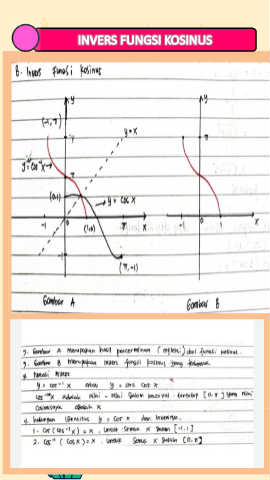 INVERS FUNGSI KOSINUS
B. Invers Fungsi Kosinus
y
y
(-1, π)
π
π
y = x
y = cos⁻¹ x
(0,1)
y = cos x
-1
0
(1,0)
π
x
-1
0
1
x
(π, -1)
Gambar A
Gambar B
Gambar A merupakan hasil pencerminan (refleksi) dari fungsi
Gambar B merupakan invers fungsi kosinus yang
y = cos⁻¹ x atau y = arc cos x
cos⁻¹ x adalah nilai - nilai dalam interval tertutup [0, π] yang nilai
cosinusnya adalah x
identitas y = cos x dan inversnya.
1. cos (cos⁻¹ x) = x untuk semua x dalam [-1, 1]
2. cos⁻¹ (cos x) = x untuk semua x dalam [0, π]